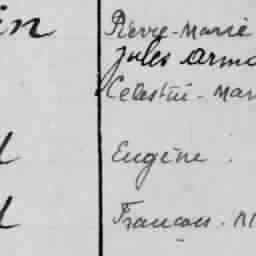 in Pierre-Marie
Jules Arma
Celestin-Mar
Eugène.
Francois. M